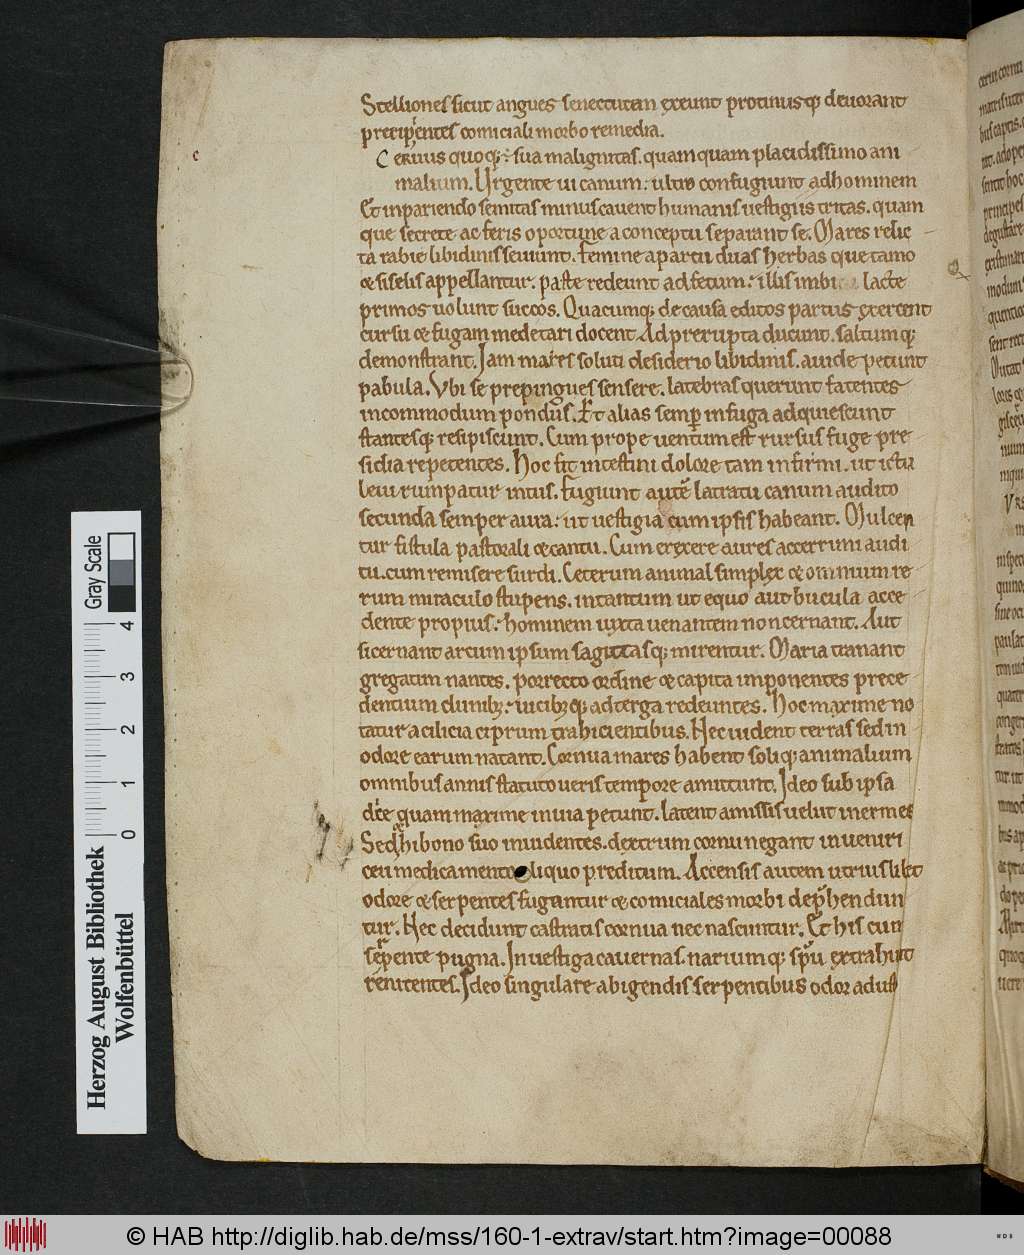 Stelliones sicut angues senectutem exeunt protinusq; deuorant
precipientes comiciali morbo remedia.
c
Ceruus quoq; sua malignitas. quam quam placidissimo ani
malium. Urgente ui canum. ultro confugiunt ad hominem
Et in pariendo semitas minus cauent humanis uestigiis tritas. quam
que secrete ac feris oportune a conceptu separant se. Mares relic
ta rabie libidinis seuiunt. femine a partu duas herbas que tamo
& siselis appellantur. paste redeunt ad fetum. illis imbi lacte
primos uolunt succos. Quacumq; de causa editos partus exercent
cursu & fugam medetari docent Ad prerupta ducunt. saltumq;
demonstrant. Iam mares soluti desiderio libidinis. auide petunt
pabula. Vbi se prepingues sensere. latebras querunt fatentes
incommodum pondus. Et alias semp in fuga adquiescunt
stantesq; resipiscunt. Cum prope uentum est rursus fuge pre
sidia repetentes. Hoc fit intestini dolore tam infirmi. ut ictu
leui rumpatur intus. fugiunt autē latratu canum audito
secunda semper aura. ut uestigia cum ipsis habeant. Mulcen
tur fistula pastorali & cantu. Cum erexere aures acerrimi audi
tu. cum remisere surdi. Ceterum animal simplex & omnium re
rum miraculo stupens. in tantum ut equo aut bucula acce
dente propius. hominem iuxta uenantem non cernant. Aut
si cernant arcum ipsum sagittasq; mirentur. Maria tranant
gregatim nantes. porrecto ordine & capita imponentes prece
dentium clunib;. uicib;q; ad terga redeuntes. Hoc maxime no
tatur a cilicia ciprum trahicientibus. Nec uident terras sed in
odore earum natant. Cornua mares habent soliq; animalium
omnibus annis statuto ueris tempore amittunt. Ideo sub ipsa
die quam maxime inuia petunt. latent amissis uelut inermes
Sed & hi bono suo inuidentes. dextrum cornu negant inueniri
ceu medicamento aliquo preditum. Accensis autem utriuslibet
odore & serpentes fugantur & comiciales morbi dephendun
tur. Nec decidunt castratis cornua nec nascuntur. Et his cum
serpente pugna. Inuestiga cauernas. nariumq; spu extrahunt
renitentes. Ideo singulare abigendis serpentibus odor adust
Herzog August Bibliothek
Wolfenbüttel
0 1 2 3 4
Gray Scale
© HAB http://diglib.hab.de/mss/160-1-extrav/start.htm?image=00088